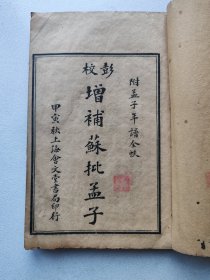 彭校
附孟子年譜全帙
增補蘇批孟子
甲寅秋上海會文堂書局印行